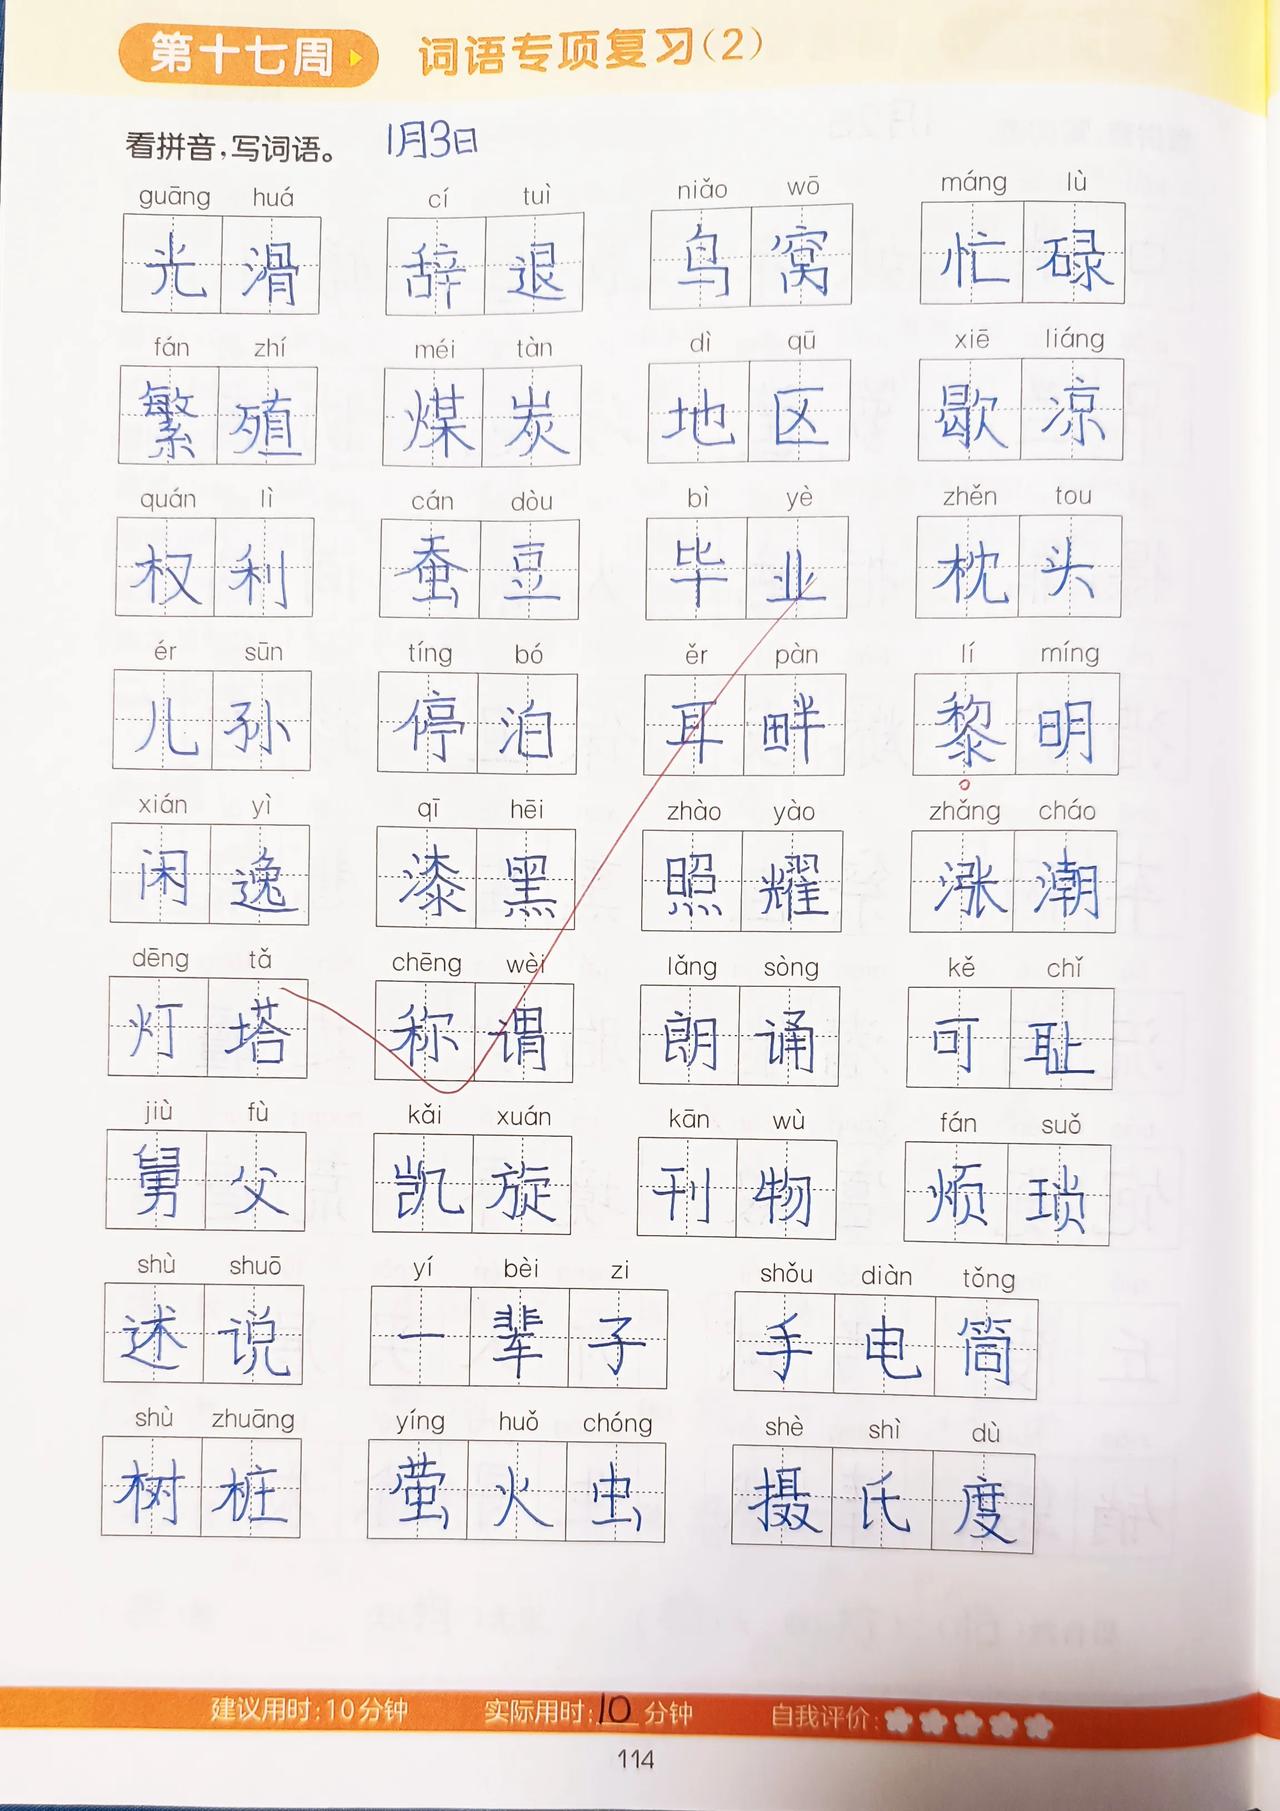 第十七周 词语专项复习(2)
看拼音,写词语。 1月3日
guāng huá cí tuì niǎo wō máng lù
光滑 辞退 鸟窝 忙碌
fán zhí méi tàn dì qū xiē liáng
繁殖 煤炭 地区 歇凉
quán lì cán dòu bì yè zhěn tou
权利 蚕豆 毕业 枕头
ér sūn tíng bó ěr pàn lí míng
儿孙 停泊 耳畔 黎明
xián yì qī hēi zhào yào zhǎng cháo
闲逸 漆黑 照耀 涨潮
dēng tǎ chēng wèi lǎng sòng kě chǐ
灯塔 称谓 朗诵 可耻
jiù fù kǎi xuán kān wù fán suǒ
舅父 凯旋 刊物 烦琐
shù shuō yí bèi zi shǒu diàn tǒng
述说 一辈子 手电筒
shù zhuāng yíng huǒ chóng shè shì dù
树桩 萤火虫 摄氏度
建议用时:10分钟 实际用时:10分钟 自我评价:
114